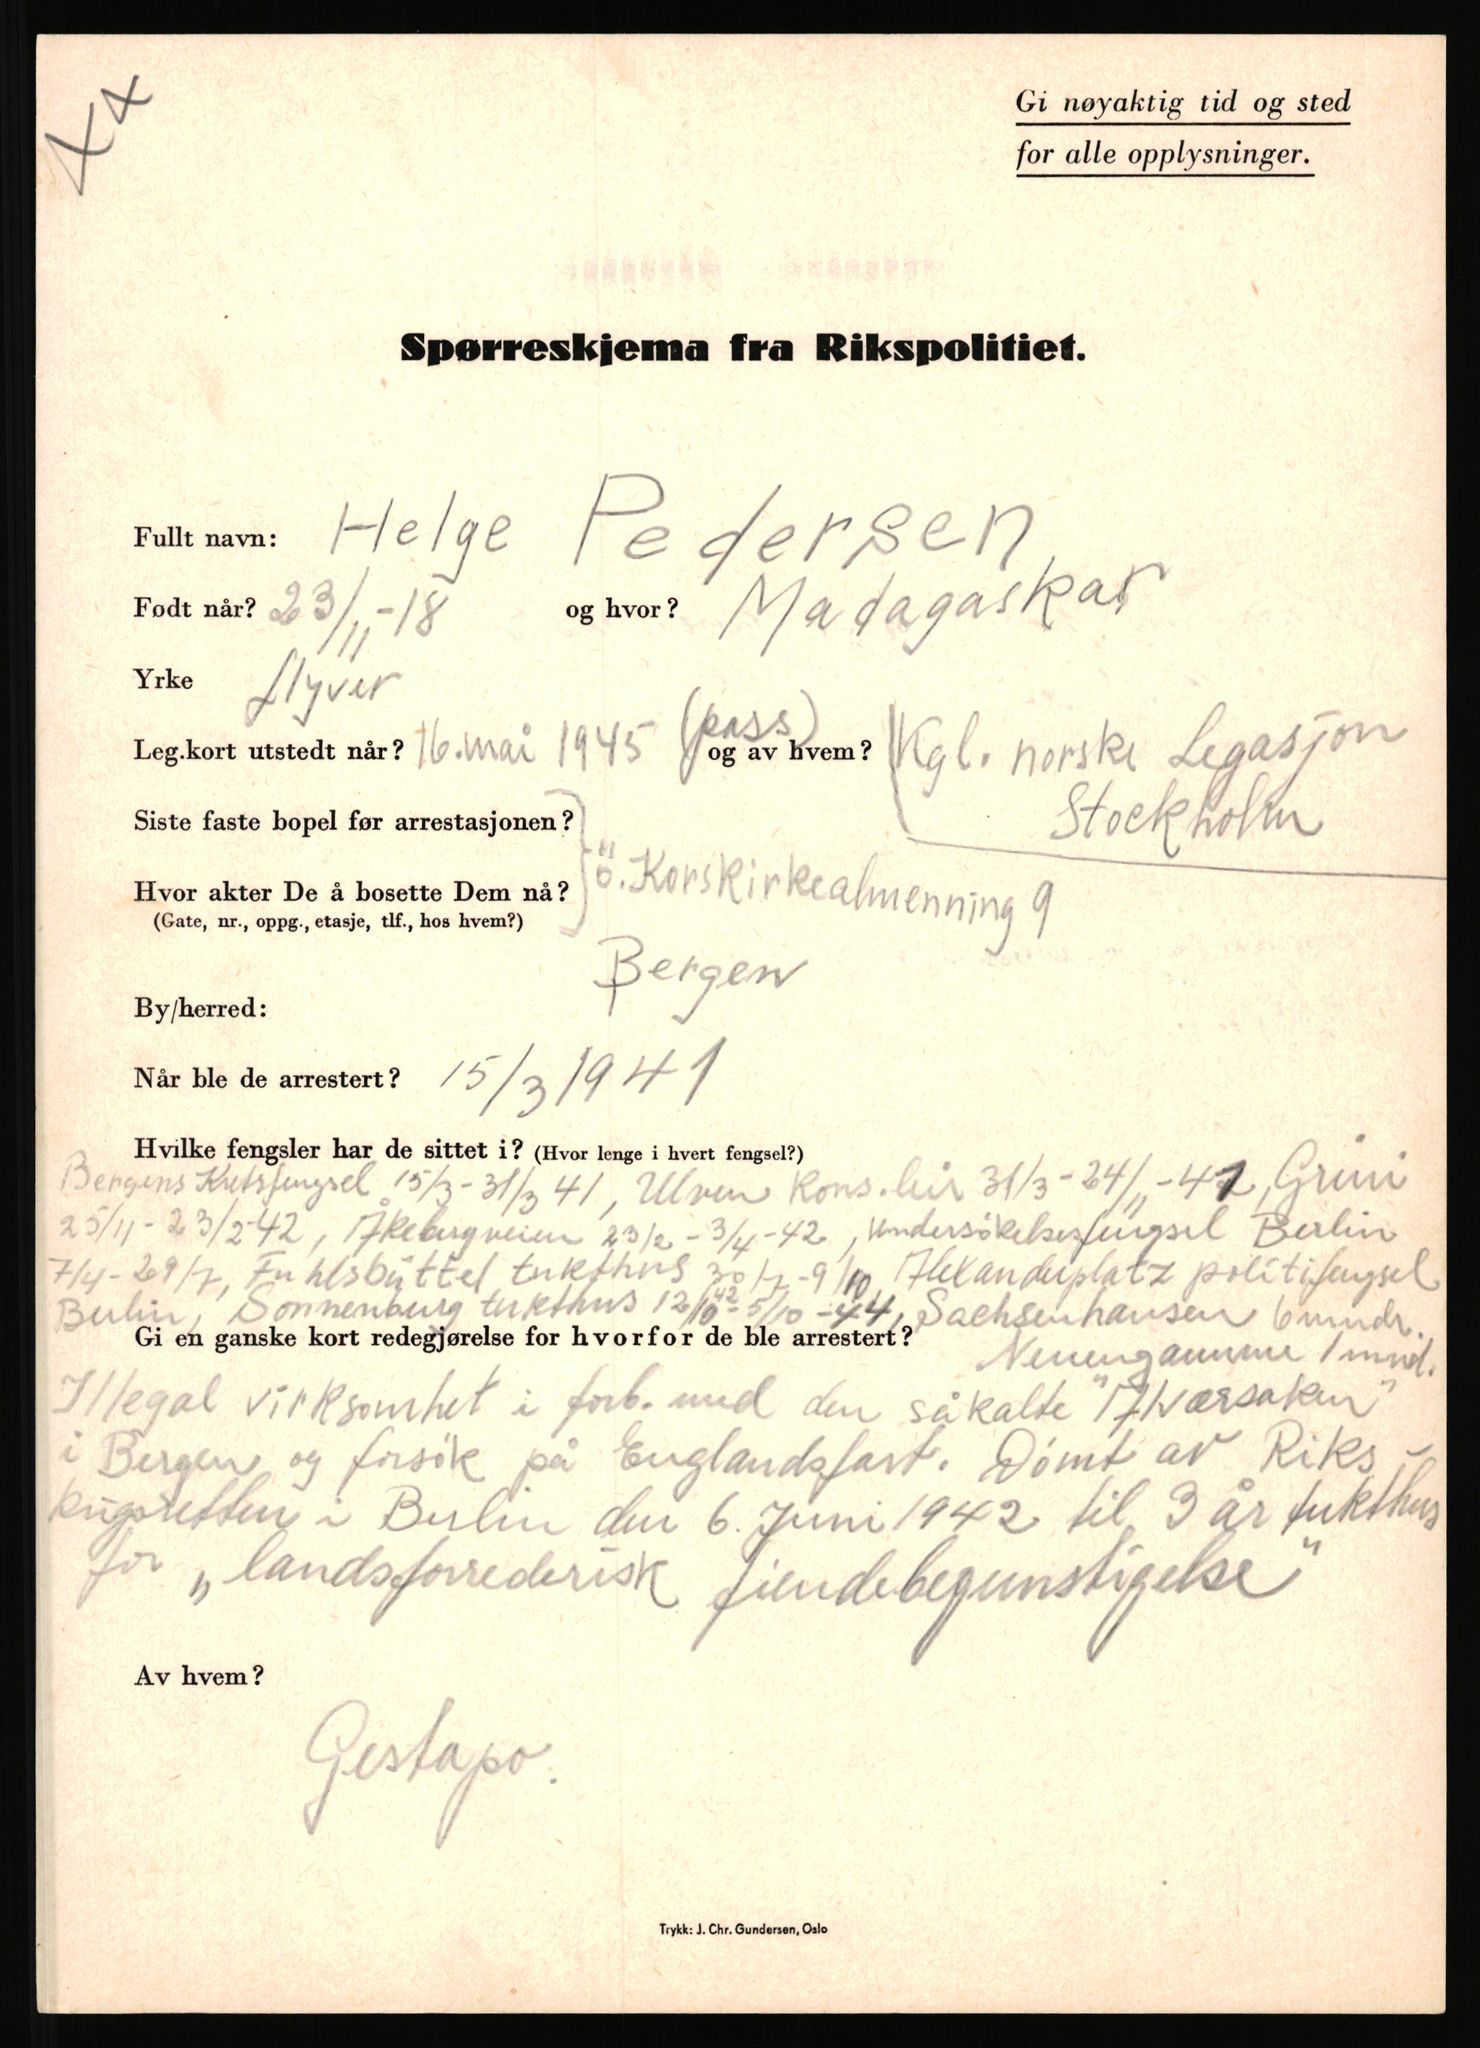 Gi nøyaktig tid og sted
for alle opplysninger.
Spørreskjema fra Rikspolitiet.
Fullt navn: Helge Pedersen
Født når? 23/11-18 og hvor? Madagaskar
Yrke flyver
Leg.kort utstedt når? 16. mai 1945 (pass) og av hvem? Kgl. norske Legasjon
Stockholm
Siste faste bopel før arrestasjonen?
Hvor akter De å bosette Dem nå? ö. Korskirkealmenning 9
(Gate, nr., oppg., etasje, tlf., hos hvem?)
Bergen
By/herred:
Når ble de arrestert? 15/3 1941
Hvilke fengsler har de sittet i? (Hvor lenge i hvert fengsel?)
Bergens Kretsfengsel 15/3-31/3 41, Ulven kons.leir 31/3-24/11-41, Grini
25/11-23/2-42, Åkebergveien 23/2-3/4-42, undersökelsesfengsel Berlin
7/4-29/7, Fuhlsbüttel tukthus 30/7-9/10, Alexanderplatz politifengsel
Berlin, Sonnenburg tukthus 12/10 42-5/10-44, Sachsenhausen 6 mndr.
Gi en ganske kort redegjørelse for hvorfor de ble arrestert?
Neuengamme 1 mnd.
Illegal virksomhet i forb. med den såkalte "Alværsaken"
i Bergen og forsök på Englandsfart. Dömt av Riks-
krigsretten i Berlin den 6. Juni 1942 til 3 år tukthus
for „landsforrederisk fiendebegunstigelse"
Av hvem?
Gestapo.
Trykk: J. Chr. Gundersen, Oslo